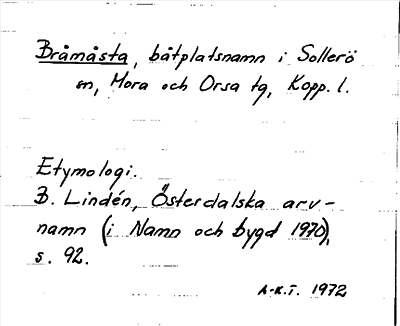 Bråmåsta, båtplatsnamn i Sollerö
sn, Mora och Orsa tg, Kopp. l.
Etymologi.
B. Lindén, Österdalska arv-
namn (i Namn och bygd 1970),
s. 92.
A-K.T. 1972